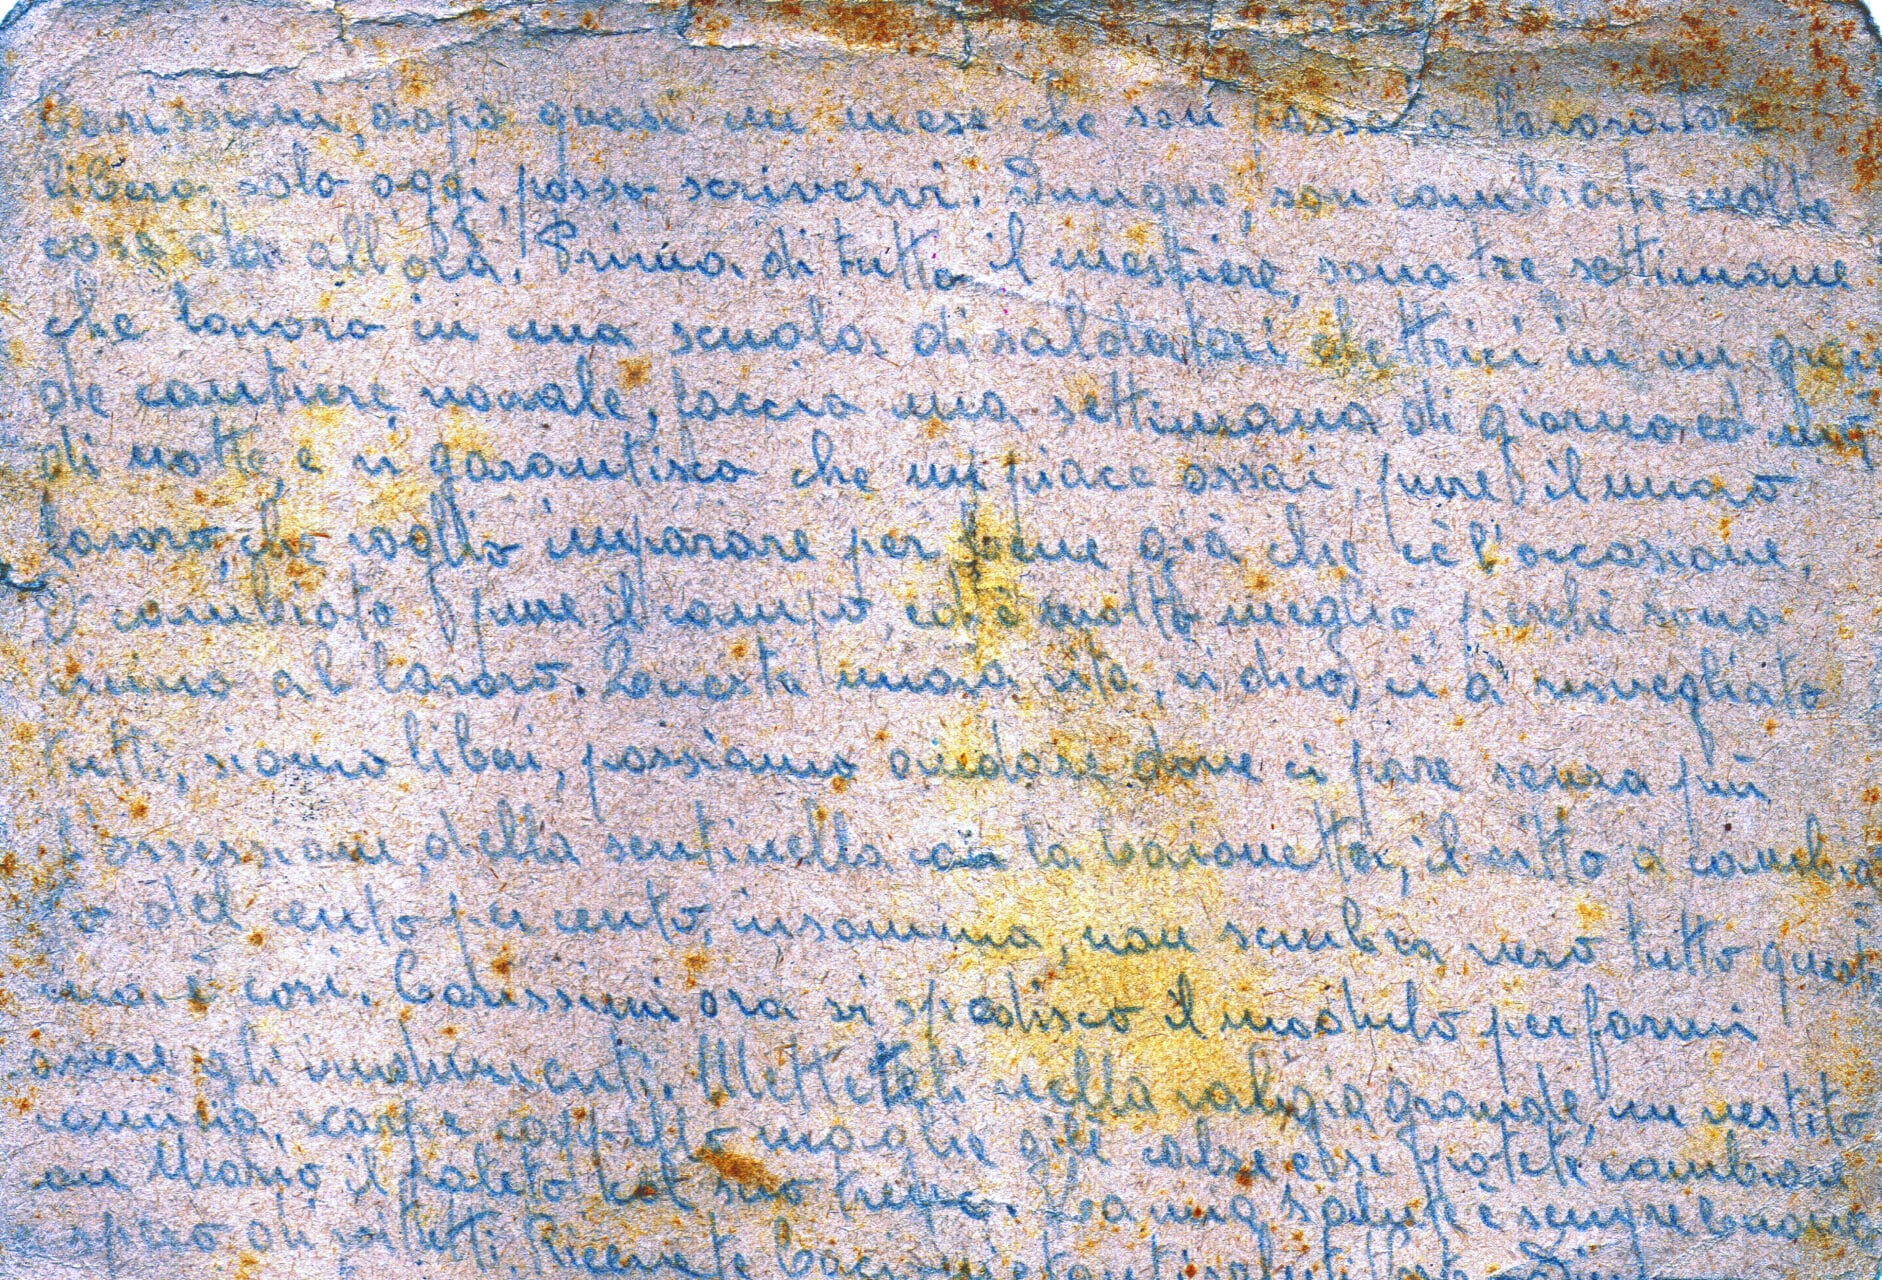 Carissimi, dopo quasi un mese che son passato a lavoratore
libero, solo oggi posso scrivervi. Dunque, son cambiate molte
cose da all'ora. Prima di tutto il mestiere, sono tre settimane
che lavoro in una scuola di saldatori elettrici in un gran
de cantiere navale, faccio una settimana di giorno ed una
di notte e vi garantisco che mi piace assai, pure il nuovo
lavoro, che voglio imparare per bene già che c'è l'occasione,
È cambiato pure il campo, ed è molto meglio, perché sono
vicino al lavoro. Questa nuova vita, vi dico, ci à risvegliato
tutti, siamo liberi, possiamo andare dove ci pare senza più
l'ossessione della sentinella con la baionetta, il vitto è cambia
to del cento per cento, insomma, non sembra vero tutto questo
ma è così. Carissimi ora vi spedisco il modulo per farmi
avere gli indumenti. Metteteli nella valigia grande, un vestito
camicia, scarpe cappello maglie gilè calze cose potete cambiare
con Mario il paletò col suo trepo. La mia salute è sempre buona
spero di voi tutti. Ricevete baci